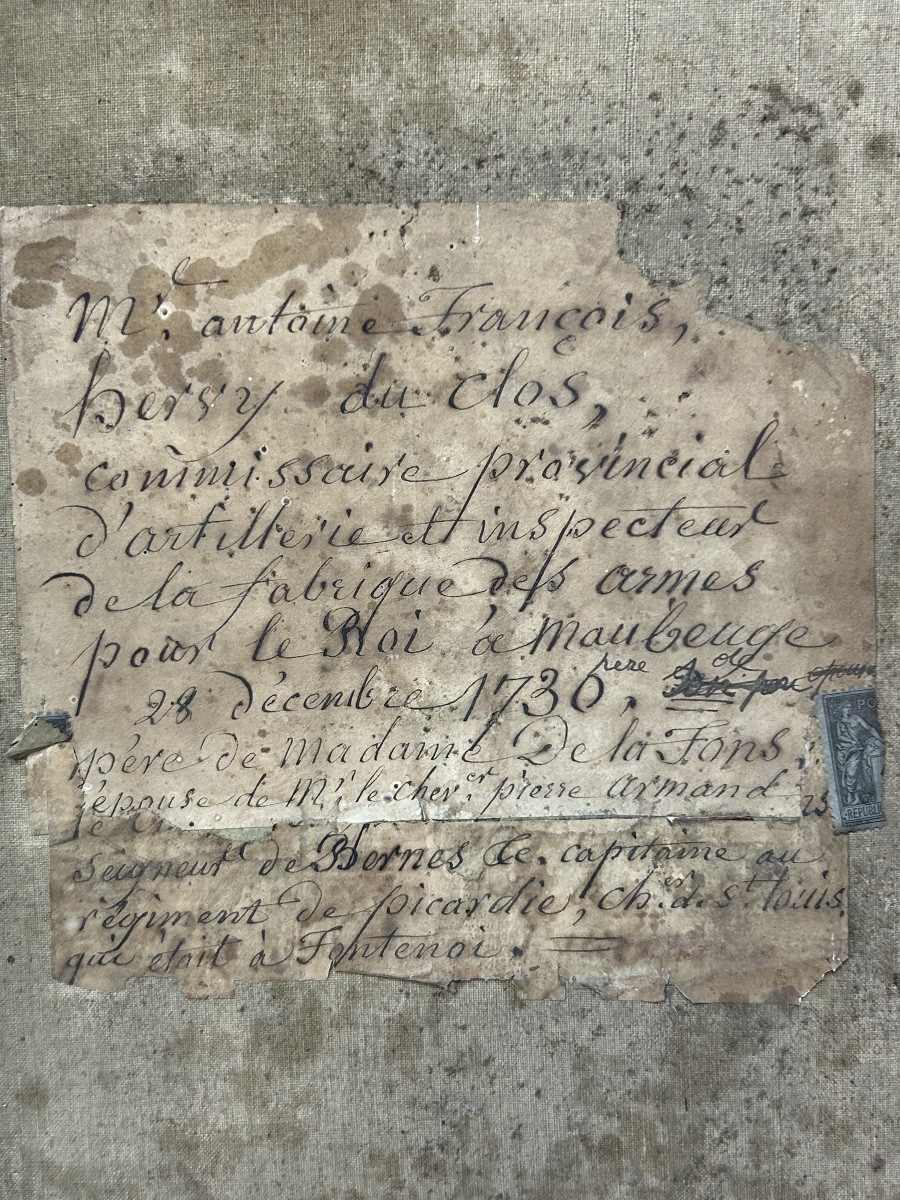 Mr. antoine François,
hervy du clos,
commissaire provincial
d'artillerie et inspecteur
de la fabrique des armes
pour le Roi à Maubeuge
28 décembre 1730,
père de Madame De la Fons,
épouse de Mr. le cher. pierre Armand
seigneur de Bernes &c. capitaine au
régiment de picardie, cher. d. st. louis
qui était à Fontenoi.